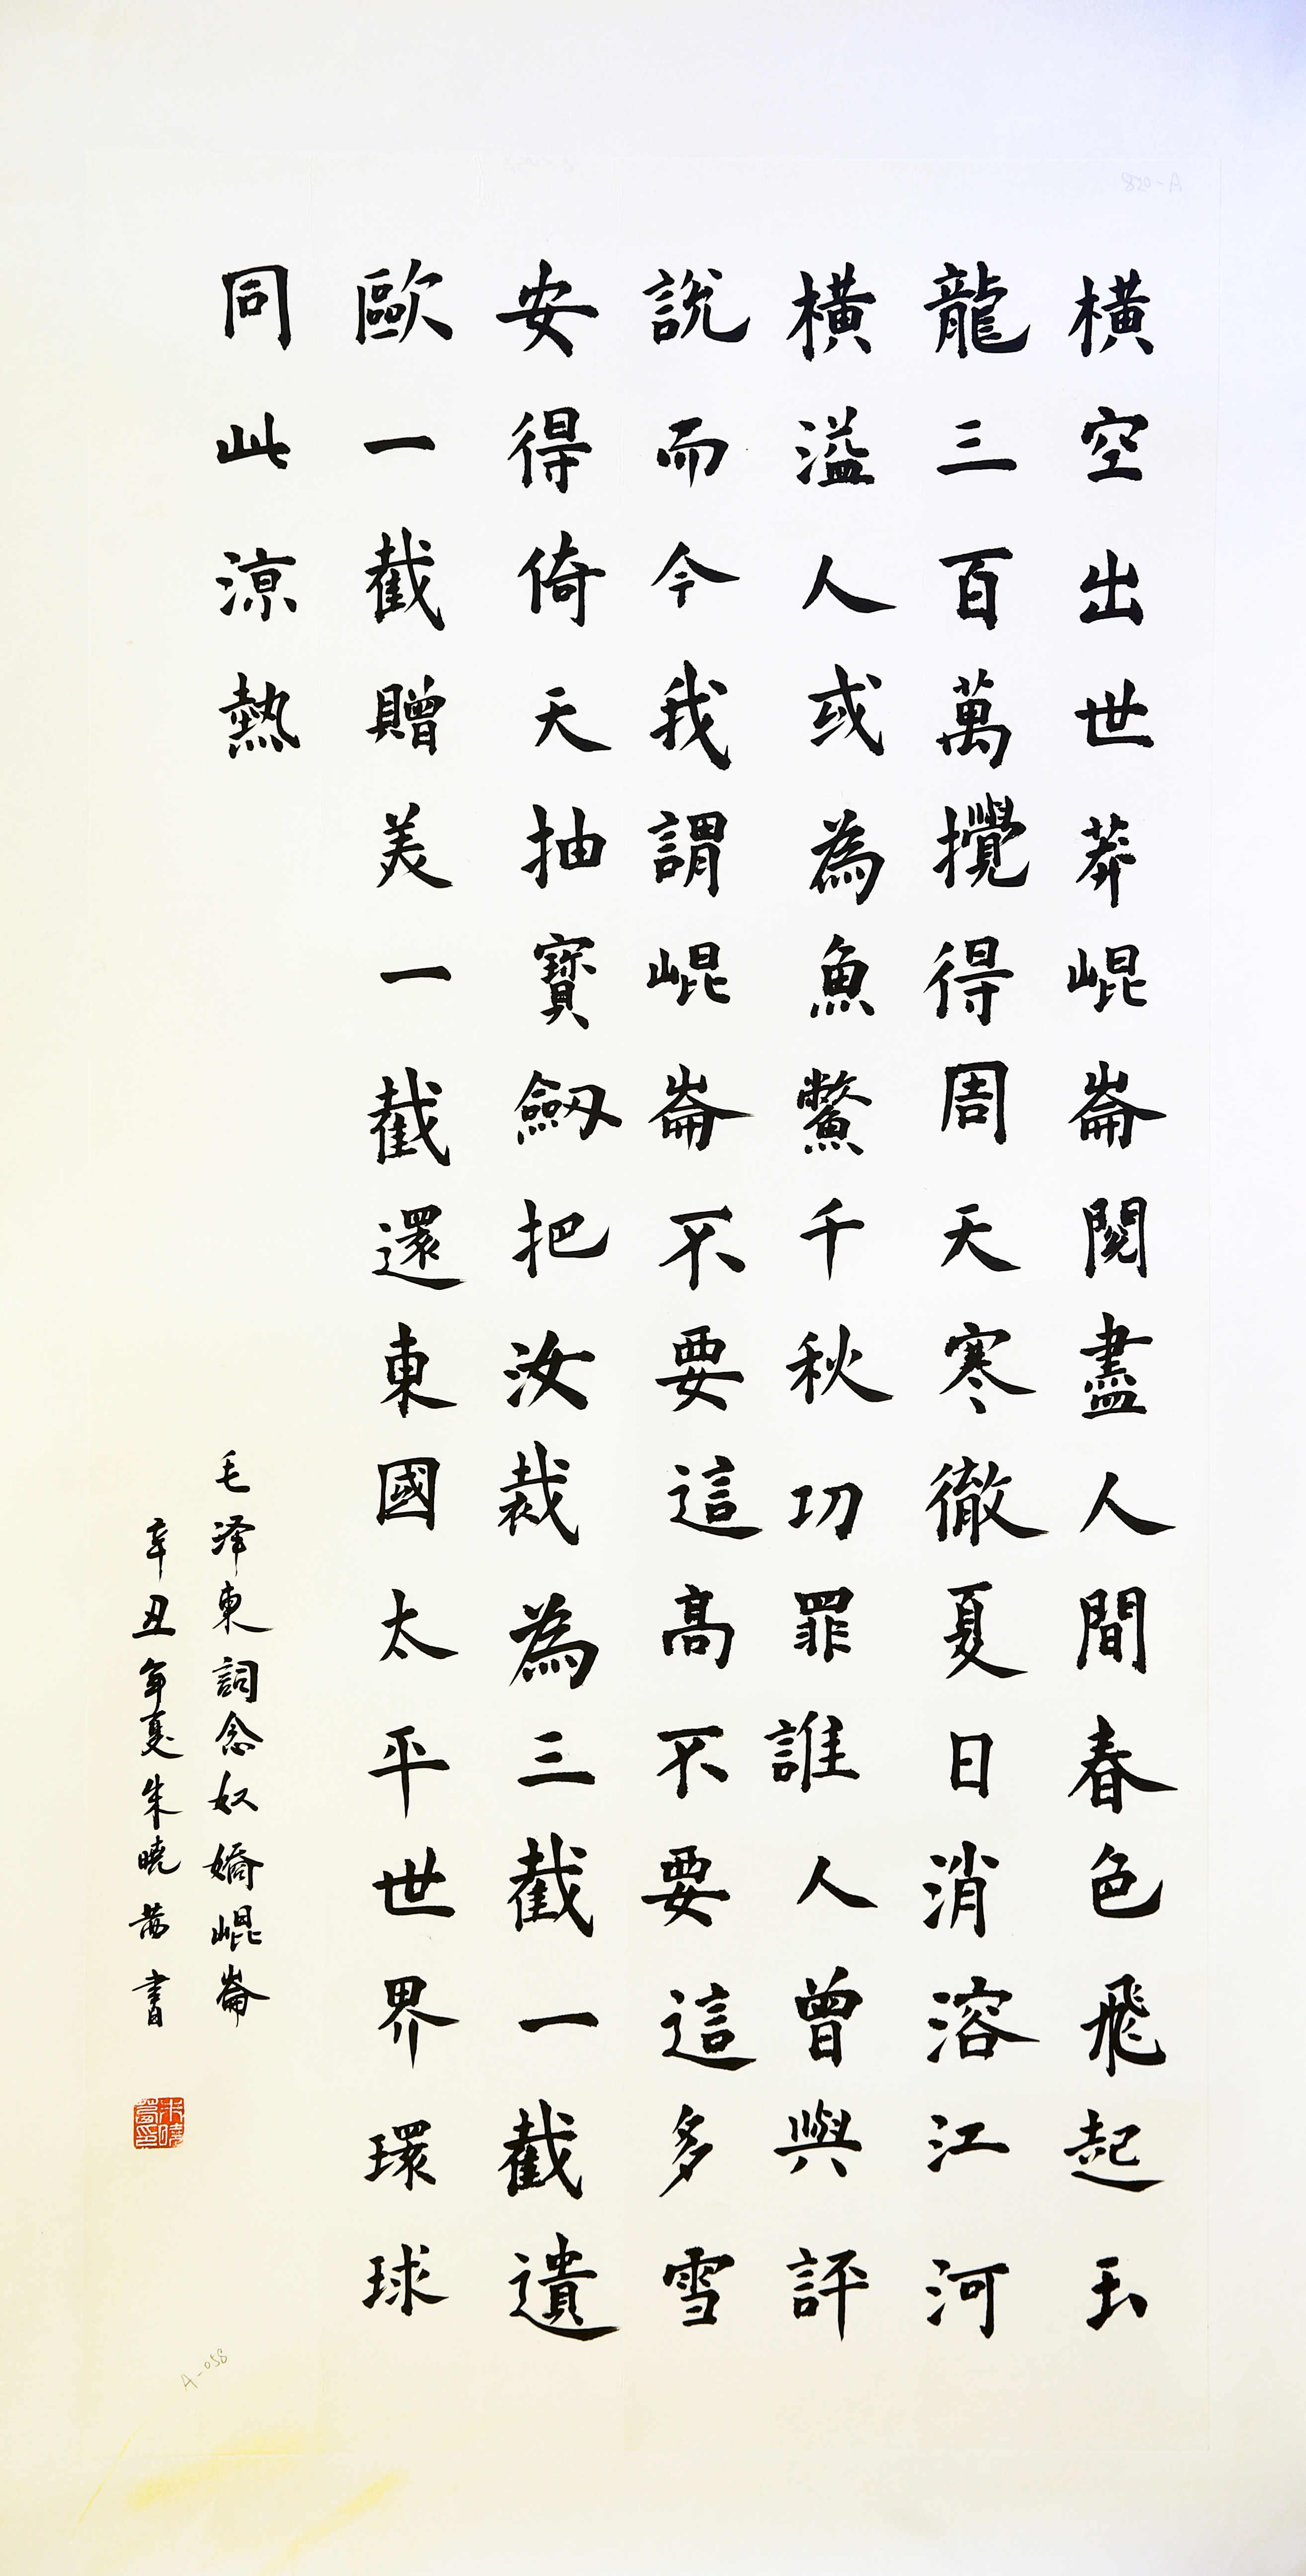 橫空出世莽崐崙閱盡人間春色飛起玉
龍三百萬攪得周天寒徹夏日消溶江河
橫溢人或為魚鱉千秋功罪誰人曾與評
說而今我謂崐崙不要這高不要這多雪
安得倚天抽寶劔把汝裁為三截一截遺
歐一截贈美一截還東國太平世界環球
同此涼熱
毛泽東詞念奴嬌崐崙
辛丑年夏朱曉茜書
A-058